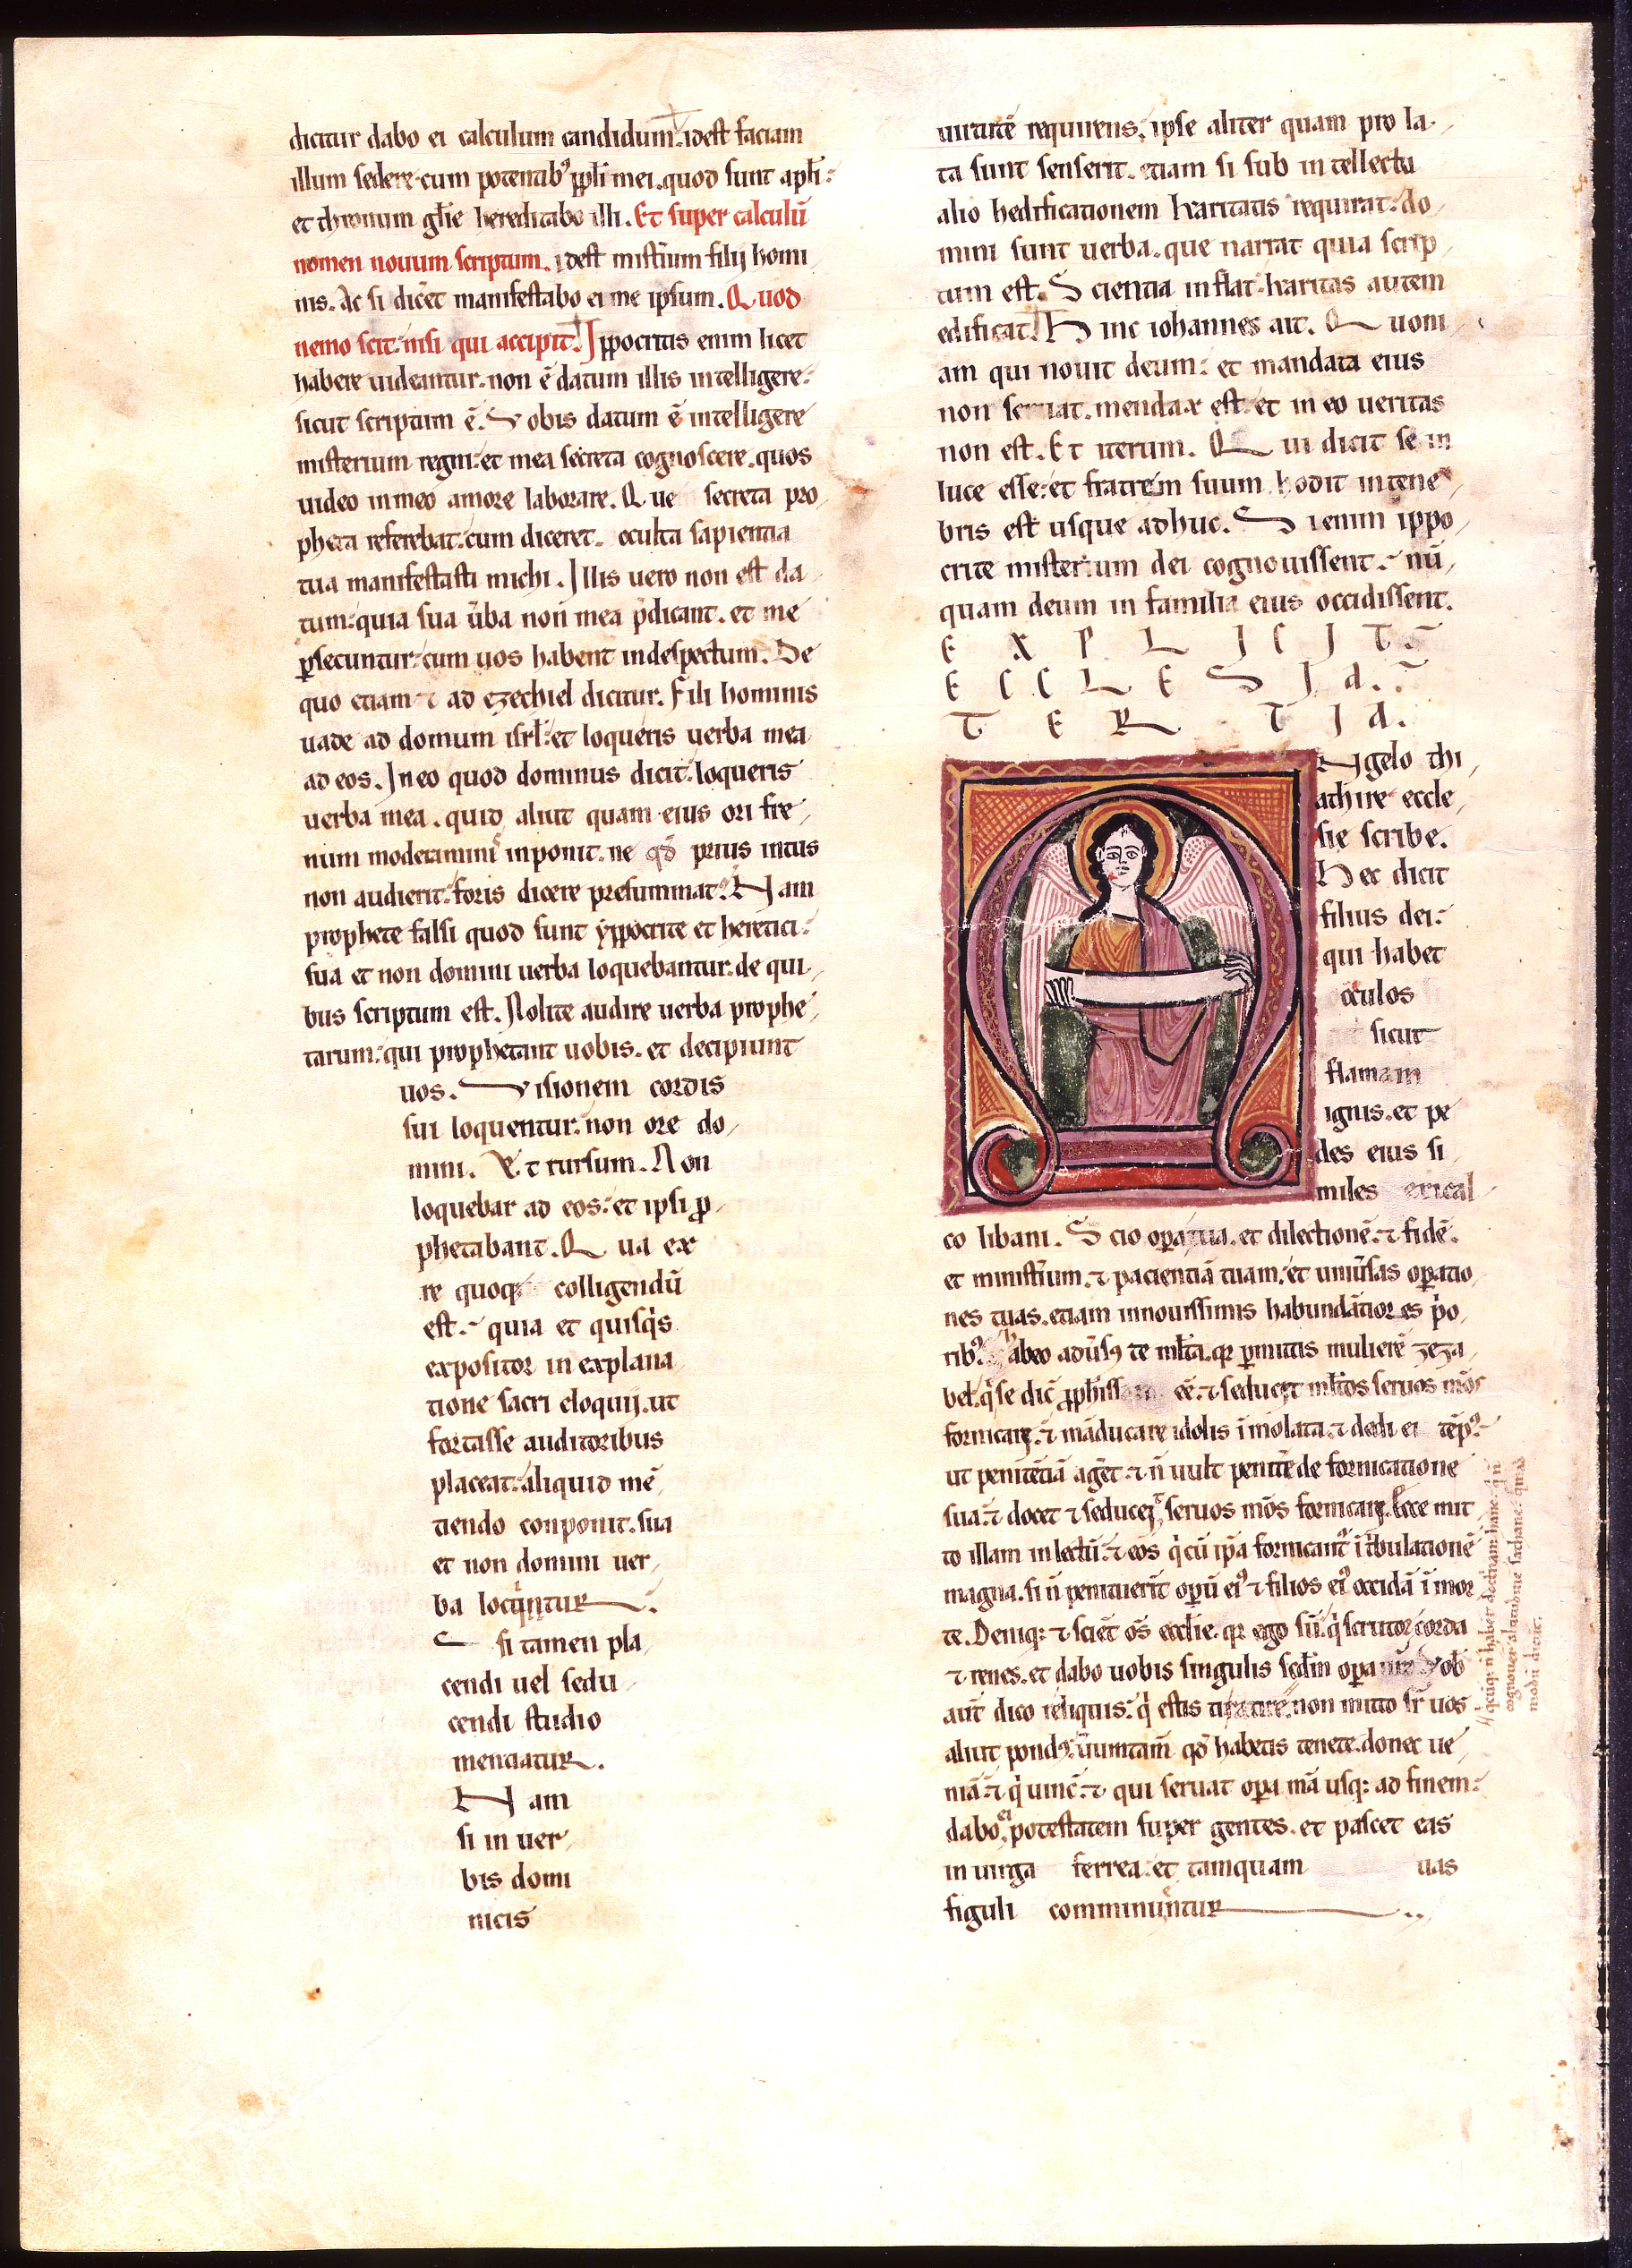 dicitur dabo ei calculum candidum. idest faciam
illum sedere cum potentibꝰ ppłi mei. quod sunt apłi:
et thronum głie hereditabo illi. Et super calculū
nomen nouum scriptum. idest mistm̄um filij homi
nis. Ac si dic̄et manifestabo ei me ipsum. Quod
nemo scit: nisi qui accipit. Ippocritis enim licet
habere uideantur. non ē datum illis intelligere:
sicut scriptum ē. Vobis datum ē intelligere
misterium regni: et mea secreta cognoscere. quos
uideo in meo amore laborare. Que secreta pro
pheta referebat: cum diceret. occulta sapientia
tua manifestasti michi. Illis uero non est da
tum: quia sua ūba non mea p̄dicant. et me
ꝑsecuntur: cum uos habent in despectum. De
quo etiam ⁊ ad ezechiel dicitur. Fili hominis
uade ad domum isrł: et loqueris uerba mea
ad eos. In eo quod dominus dicit: loqueris
uerba mea. quid aliut quam eius ori fre
num moderamini inponit. ne qđ prius intus
non audierit: foris dicere presummat? Nam
prophete falsi quod sunt ẏppocrite et heretici:
sua et non domini uerba loquebantur. de qui
bus scriptum est. Nolite audire uerba prophe
tarum: qui prophetant uobis. et decipiunt
uos. Visionem cordis
sui loquentur. non ore do
mini. Et rursum. Non
loquebar ad eos: et ipsi ꝓ
phetabant. Qua ex
re quoq: colligendū
est. quia et quisq's
expositor in explana
tione sacri eloquij. ut
fortasse auditoribus
placeat: aliquid mē
tiendo conponit. sua
et non domini uer
ba locuntur.
si tamen pla
cendi uel sedu
cendi studio
mentiatur.
Nam
si in uer
bis domi
nicis
uirtutē requirens, ipse aliter quam pro la
ta sunt senserit. etiam si sub intellectu
alio hedificationem karitatis requirat: do
mini sunt uerba. que narrat quia scrip
tum est. Scientia inflat: karitas autem
edificat. Hinc iohannes ait. Quoni
am qui nouit deum: et mandata eius
non seruat. mendax est. et in eo ueritas
non est. Et iterum. Qui dicit se in
luce esse: et fratrem suum hodit in tene
bris est usque adhuc. Si enim ippo
crite misterium dei cognouissent. nū
quam deum in familia eius occidissent.
EXPLICIT
ECCLESIA.
TERTIA.
Angelo thi
athire eccle
sie scribe.
Hec dicit
filius dei:
qui habet
oculos
sicut
flamam
ignis. et pe
des eius si
miles erical
co libani. Scio opera tua. et dilectionē. ⁊ fidē.
et ministm̄um. ⁊ pacientiā tuam: et uniūsas oꝑatio
nes tuas. etiam in nouissimis habundātiores p'o
ribꝰ. habeo adūsꝰ te młta. qr ꝑmittis mulierē zeza
bel. q̄ se dic̄ ꝓphiss ēē. ⁊ seducit młtos seruos mōs
fornicare. ⁊ māducare idolis īmolata. ⁊ dedi ei tēpꝰ
ut penitētiā agēt. ⁊ n̄ uult penit̄e de fornicatione
sua. ⁊ docet ⁊ seducet seruos mōs fornicare. Ecce mit
to illam in lectū. ⁊ eos q'cū ip̄a fornicant᷑ ī tribulationē
magna. si n̄ penituerīt oꝑū eiꝰ ⁊ filios eiꝰ occidā ī mor
te. Deniq: ⁊ sciēt ōs ecclie. qr ego sū. q' scrutor corda
⁊ renes. et dabo uobis singulis sed̄m opera ur̄a Vob
aut̄ dico reliquis: q' estis tiratire. non mitto sr̄ uos
aliut pondꝰ. ūumtam̄ qđ habetis tenete. donec ue
niā. ⁊ q' uinc̄. ⁊ qui seruat opa mā usq: ad finem:
dabo ei potestatem super gentes. et pascet eas
in uirga ferrea: et tamquam uas
figuli comminuntur
qcūq: n̄ habet doctrinam hanc. q' n̄
cognouer̄ altitudinē sathane. quēad
modū dicūt.